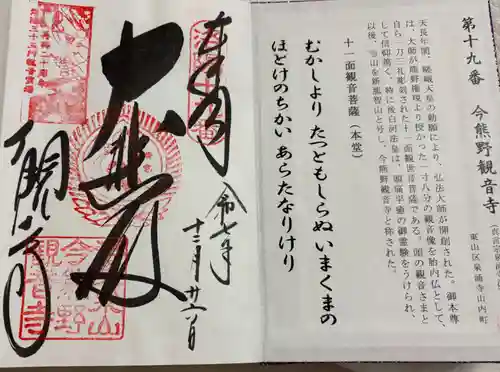 第十九番 今熊野観音寺
東山区泉涌寺山内町
天長年間、嵯峨天皇の勅願により、弘法大師が開創された。御本尊
は、大師が熊野権現より授かった一寸八分の観音像を胎内仏として、
自ら一刀三礼彫刻された十一面観世音菩薩である。頭の観音さまと
して信仰篤く、特に後白河法皇は、頭痛平癒の御霊験をうけられ、
以後、当山を新那智山と号し、今熊野観音寺と称された。
十一面観音菩薩（本堂）
むかしより たつともしらぬ いまくまの
ほとけのちかい あらたなりけり
奉拝
令和七年
十二月廿一日
大悲殿
今熊野
観音寺